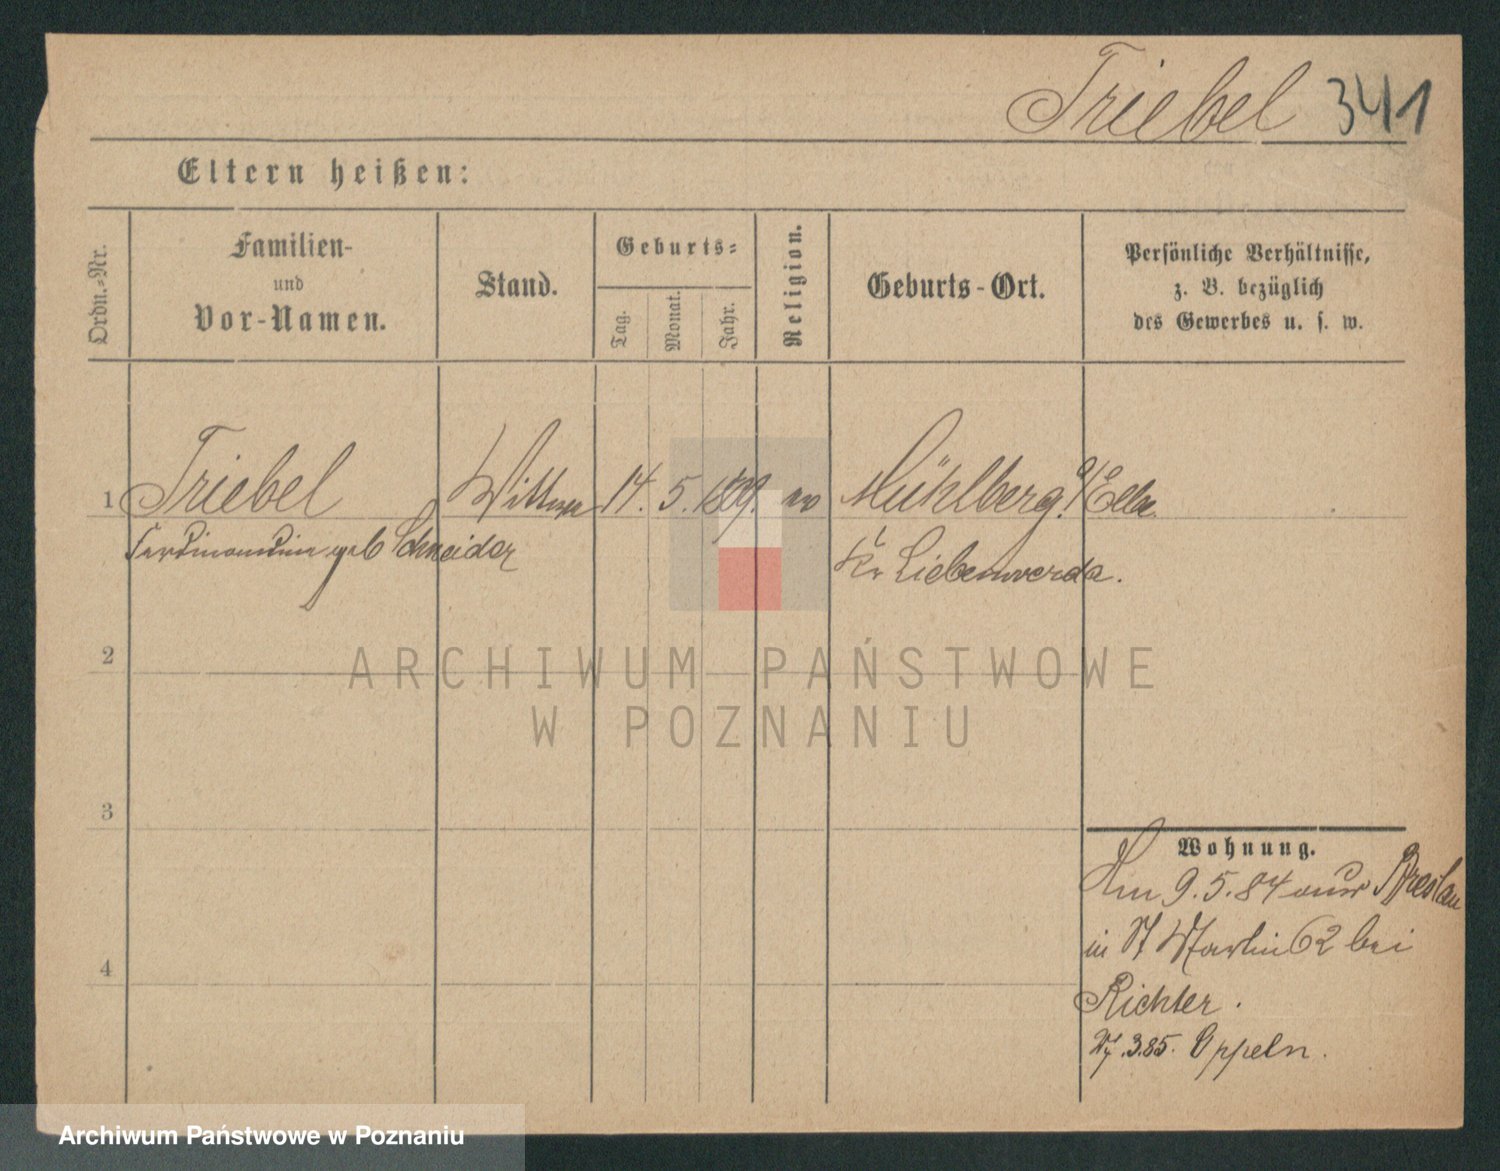 Triebel 341
Eltern heißen:
Ordn.-Nr.
Familien-
und
Vor-Namen.
Stand.
Geburts-
Tag.
Monat.
Jahr.
Religion.
Geburts-Ort.
Persönliche Verhältnisse,
z. B. bezüglich
des Gewerbes u. s. w.
1 Triebel Wittwe 14. 5. 1809. ev Mühlberg a/Elbe
Ferdinandine geb Schneider
Kr Liebenwerda.
2
3
4
Wohnung.
Am 9.5.84 aus Breslau
in St Martin 62 bei
Richter.
3.85. Oppeln.
ARCHIWUM PAŃSTWOWE
W POZNANIU
Archiwum Państwowe w Poznaniu